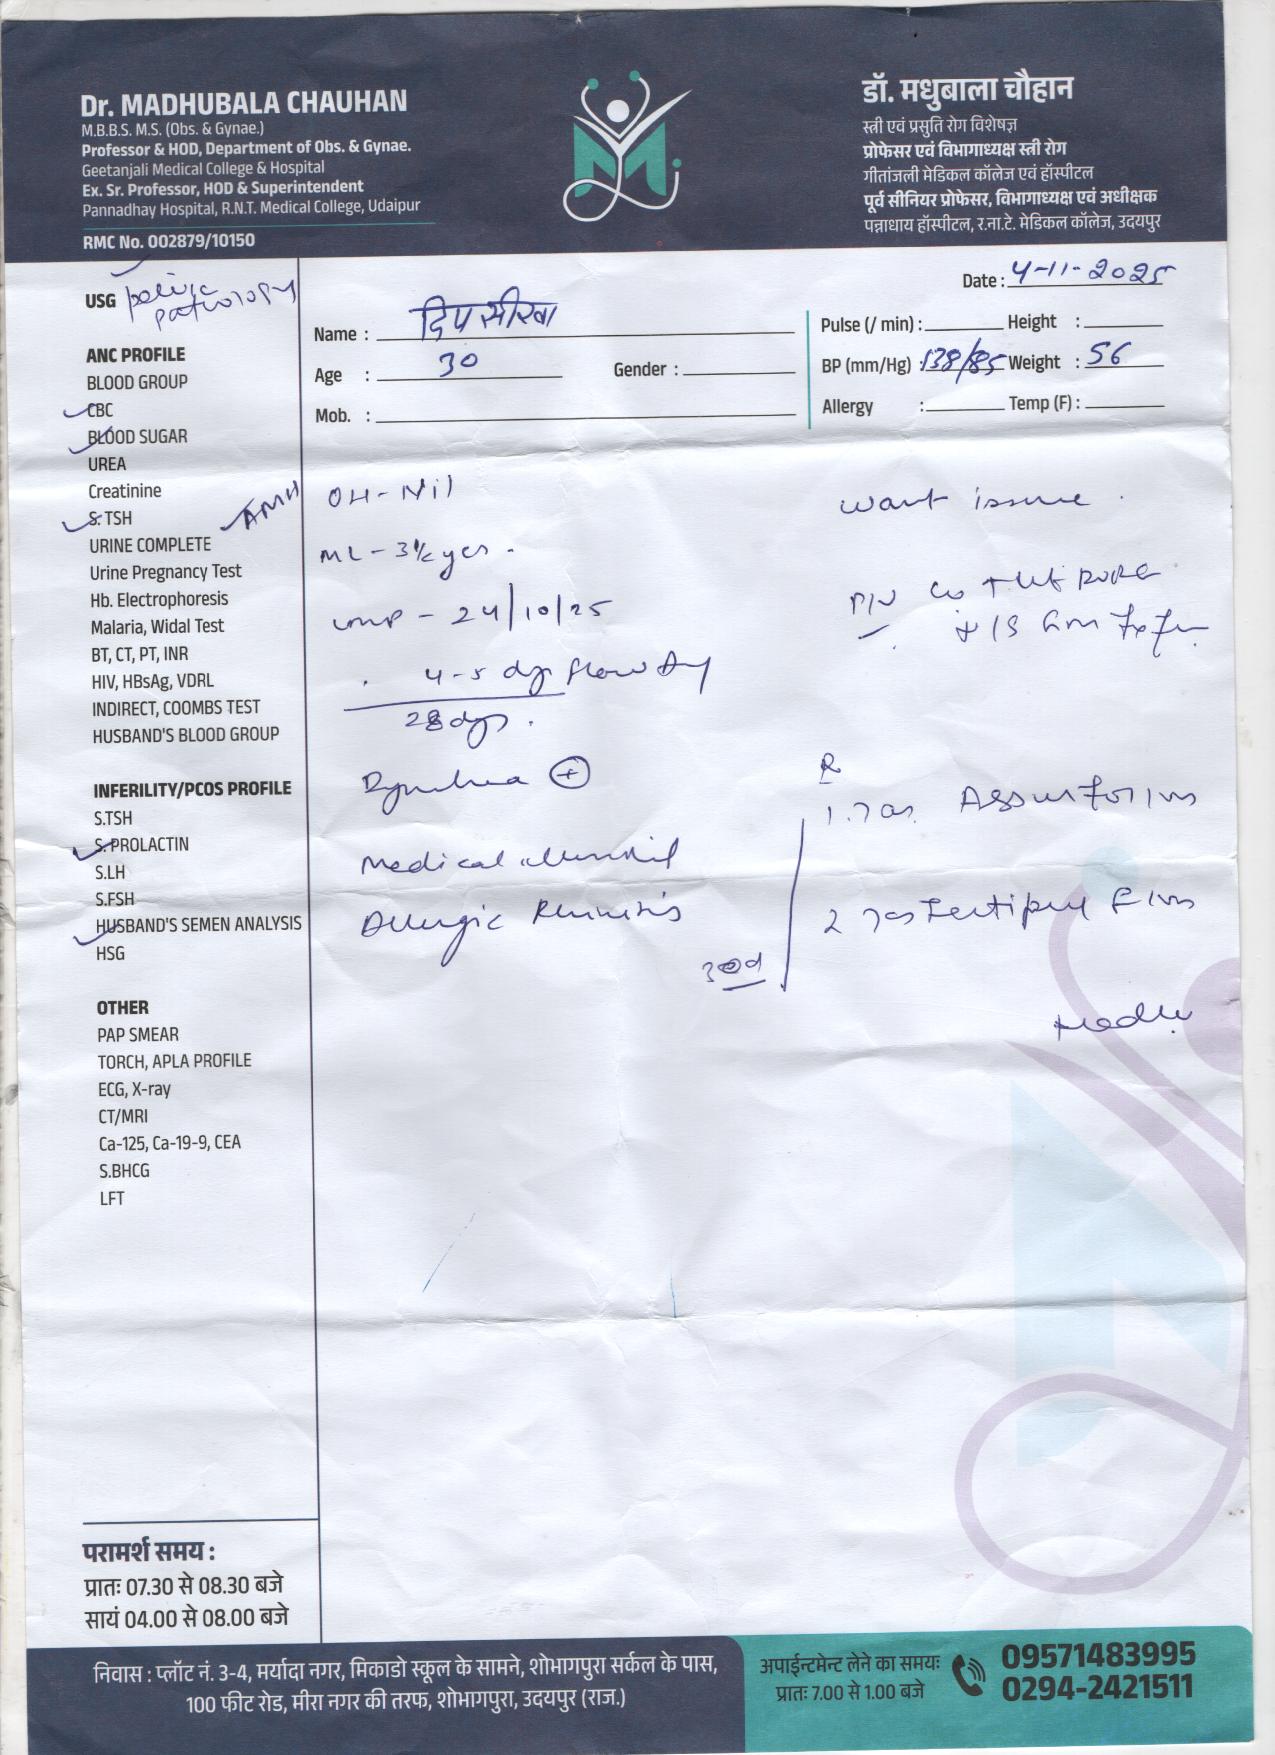 Dr. MADHUBALA CHAUHAN
M.B.B.S. M.S. (Obs. & Gynae.)
Professor & HOD, Department of Obs. & Gynae.
Geetanjali Medical College & Hospital
Ex. Sr. Professor, HOD & Superintendent
Pannadhay Hospital, R.N.T. Medical College, Udaipur
RMC No. 002879/10150
डॉ. मधुबाला चौहान
स्त्री एवं प्रसुति रोग विशेषज्ञ
प्रोफेसर एवं विभागाध्यक्ष स्त्री रोग
गीतांजली मेडिकल कॉलेज एवं हॉस्पीटल
पूर्व सीनियर प्रोफेसर, विभागाध्यक्ष एवं अधीक्षक
पन्नाधाय हॉस्पीटल, र.ना.टे. मेडिकल कॉलेज, उदयपुर
Date : 4-11-2025
Name : दिपसीखा
Age : 30 Gender :
Mob. :
Pulse (/ min) : Height :
BP (mm/Hg) : 138/85 Weight : 56
Allergy : Temp (F) :
USG pelvic
pathology
ANC PROFILE
BLOOD GROUP
CBC
BLOOD SUGAR
UREA
Creatinine
S. TSH AMH
URINE COMPLETE
Urine Pregnancy Test
Hb. Electrophoresis
Malaria, Widal Test
BT, CT, PT, INR
HIV, HBsAg, VDRL
INDIRECT, COOMBS TEST
HUSBAND'S BLOOD GROUP
INFERILITY/PCOS PROFILE
S.TSH
S. PROLACTIN
S.LH
S.FSH
HUSBAND'S SEMEN ANALYSIS
HSG
OTHER
PAP SMEAR
TORCH, APLA PROFILE
ECG, X-ray
CT/MRI
Ca-125, Ca-19-9, CEA
S.BHCG
LFT
OH - Nil
ML - 3½ yrs.
LMP - 24/10/25
4-5 dys flow
28 dys.
+
Medical
Allergic Rhinitis
want issue.
P/V
R
1.
2
30d
परामर्श समय :
प्रातः 07.30 से 08.30 बजे
सायं 04.00 से 08.00 बजे
निवास : प्लॉट नं. 3-4, मर्यादा नगर, मिकाडो स्कूल के सामने, शोभागपुरा सर्कल के पास,
100 फीट रोड, मीरा नगर की तरफ, शोभागपुरा, उदयपुर (राज.)
अपाईन्टमेन्ट लेने का समयः
प्रातः 7.00 से 1.00 बजे
09571483995
0294-2421511